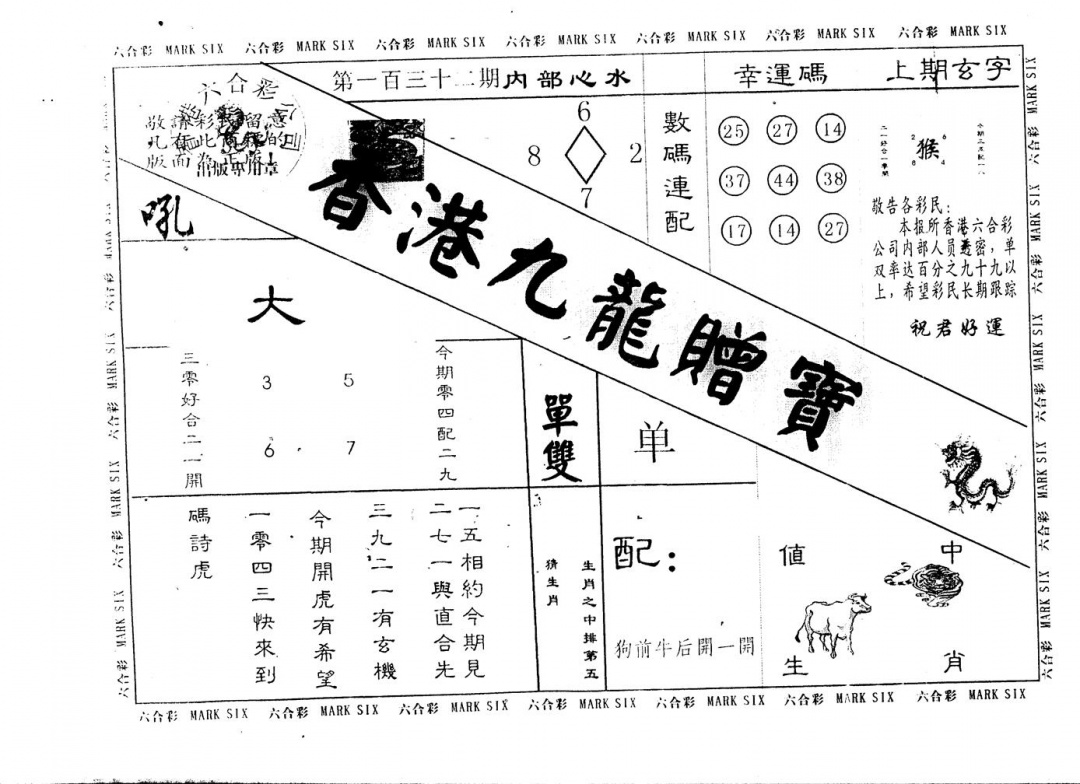 六合彩 MARK SIX 六合彩 MARK SIX 六合彩 MARK SIX 六合彩 MARK SIX 六合彩 MARK SIX 六合彩 MARK SIX 六合彩 MARK SIX
第一百三十二期内部心水
幸運碼
上期玄字
六合彩
敬請彩民留意
出版專用章
吼
6
8 2
7
數碼連配
25 27 14
37 44 38
17 14 27
猴
敬告各彩民:
本报所香港六合彩
公司内部人员透密,单
双率达百分之九十九以
上,希望彩民长期跟踪
祝君好運
香港九龍贈寶
大
三零好合二一開
3 5
6 7
今期零四配二九
單雙
单
一五相約今期見
二七一與直合先
三九二一有玄機
今期開虎有希望
一零四三快來到
碼詩虎
生肖之中排第五
猜生肖
配:
狗前牛后開一開
值 中
生 肖
六合彩 MARK SIX 六合彩 MARK SIX 六合彩 MARK SIX 六合彩 MARK SIX 六合彩 MARK SIX 六合彩 MARK SIX 六合彩 MARK SIX
六合彩 MARK SIX 六合彩 MARK SIX 六合彩 MARK SIX 六合彩 MARK SIX
六合彩 MARK SIX 六合彩 MARK SIX 六合彩 MARK SIX 六合彩 MARK SIX 六合彩